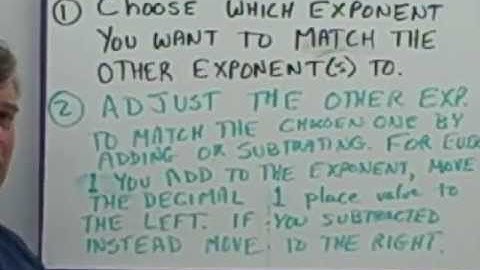 ① CHOOSE WHICH EXPONENT
YOU WANT TO MATCH THE
OTHER EXPONENT(S) TO.
② ADJUST THE OTHER EXP.
TO MATCH THE CHOOSEN ONE BY
ADDING OR SUBTRATING. FOR EVER
1 YOU ADD TO THE EXPONENT, MOVE
THE DECIMAL 1 place value to
THE LEFT. IF YOU SUBTRACTED
INSTEAD MOVE TO THE RIGHT.